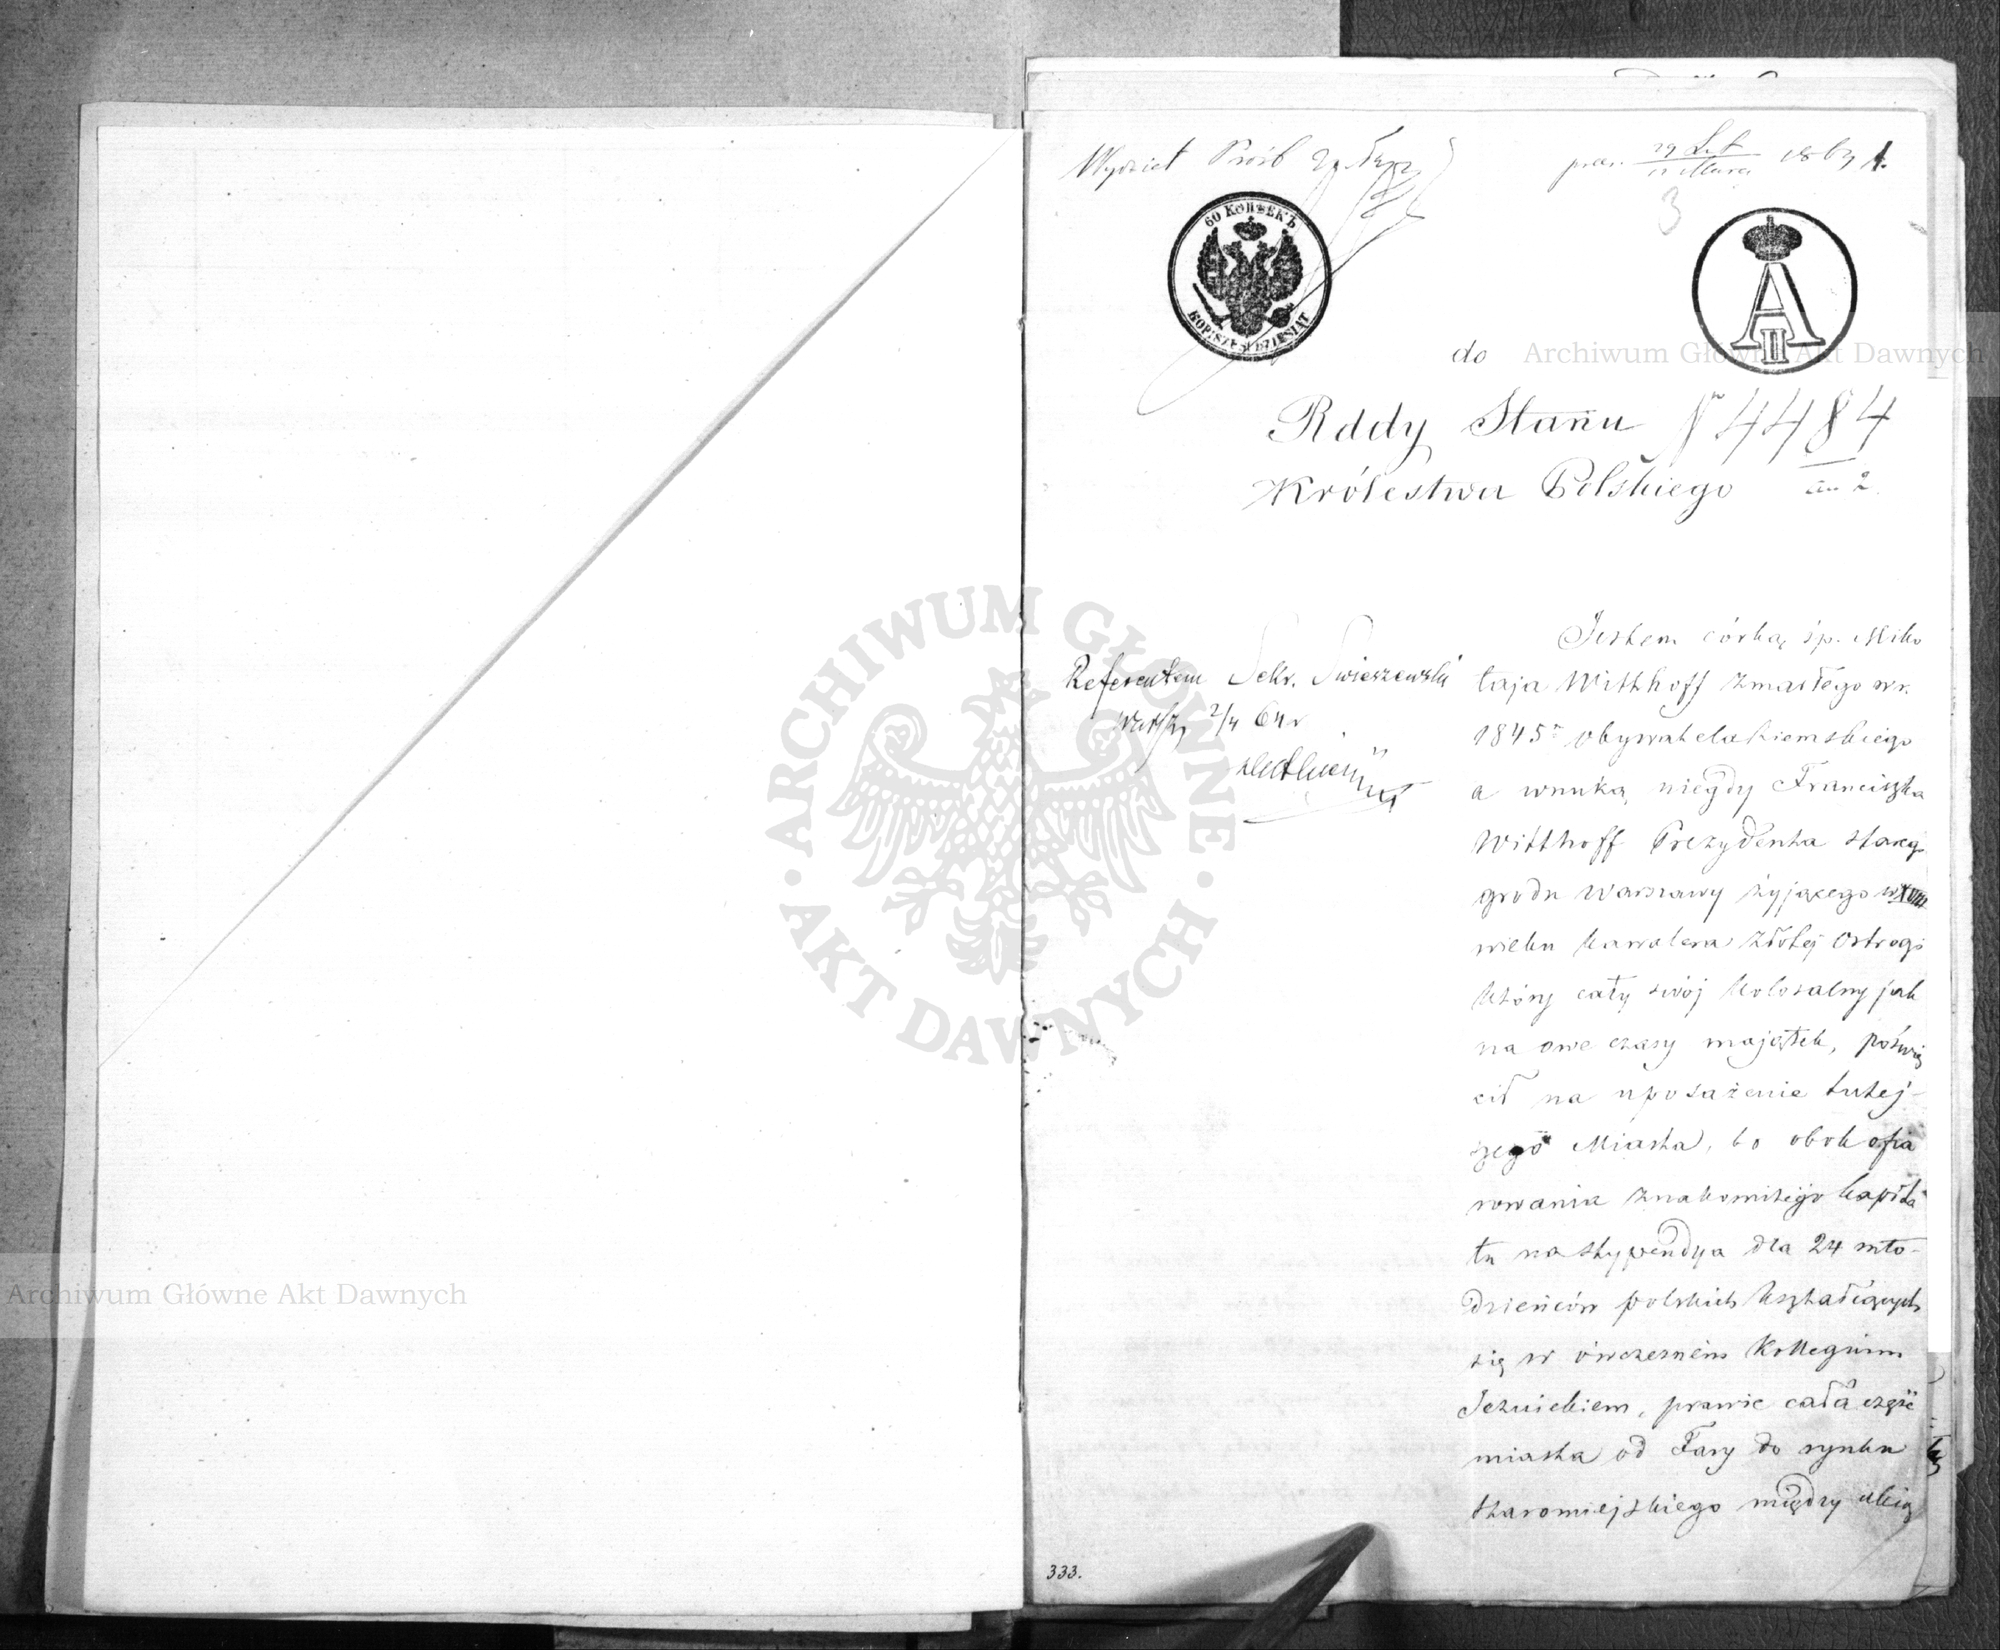 Wydział Próśb
pres. 29 Lut 186
3
60 КОПѢЕКЪ
KOP: SZEŚĆDZIESIĄT
A II
do
Rady Stanu N 4484
Królestwa Polskiego
Jestem córką śp. Miko
Referentem Sekr. Swieszewski
łaja Witthoff zmarłego w r.
2/4 64 r
1845 r obywatela ziemskiego
a wnuką niegdy Franciszka
Witthoff Prezydenta starego
grodu Warszawy żyjącego w XVIII
wieku kawalera złotej Ostrogi
który cały swój kolosalny jak
na owe czasy majątek, poświę
cił na uposażenie tutej-
szego Miasta, bo obok ofia
rowania znakomitego kapita
łu na stypendya dla 24 mło-
dzieńców polskich kształcących
się w ówczesnem Kollegium
Jezuickiem, prawie całą część
miasta od Fary do rynku
Staromiejskiego między ulicą
333.
Archiwum Główne Akt Dawnych
Archiwum Główne Akt Dawnych
ARCHIWUM GŁÓWNE · AKT DAWNYCH ·